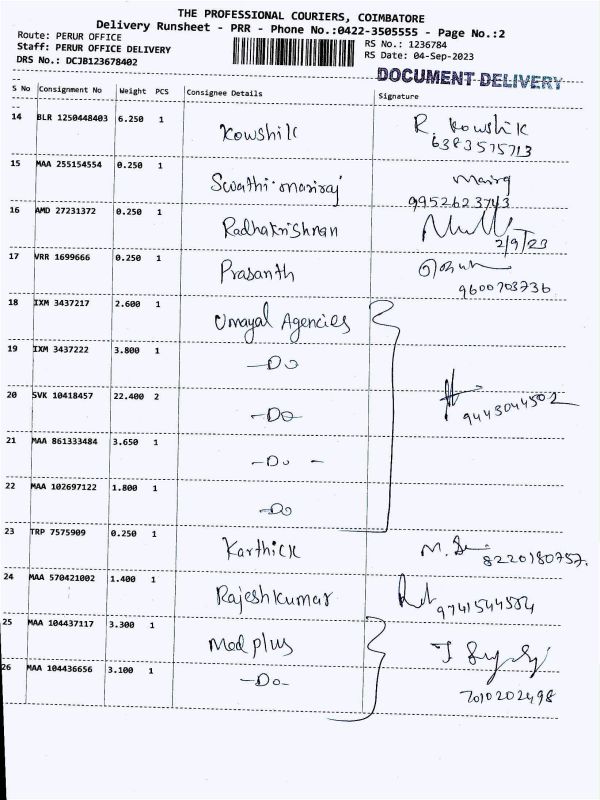 THE PROFESSIONAL COURIERS, COIMBATORE
Delivery Runsheet - PRR - Phone No.:0422-3505555 - Page No.:2
Route: PERUR OFFICE
Staff: PERUR OFFICE DELIVERY
DRS No.: DCJB123678402
RS No.: 1236784
RS Date: 04-Sep-2023
DOCUMENT DELIVERY
S No Consignment No Weight PCS Consignee Details Signature
14 BLR 1250448403 6.250 1 Kowshik R. Kowshik
6383575713
15 MAA 255154554 0.250 1 Swathi.mariraj
9952623743
16 AMD 27231372 0.250 1 Radhakrishnan
2/9/23
17 VRR 1699666 0.250 1 Prasanth
9600703736
18 IXM 3437217 2.600 1 Umayal Agencies
19 IXM 3437222 3.800 1 -Do
20 SVK 10418457 22.400 2 -Do-
9443044502
21 MAA 861333484 3.650 1 -Do -
22 MAA 102697122 1.800 1 -Do
23 TRP 7575909 0.250 1 Karthick M.
8220180757.
24 MAA 570421002 1.400 1 Rajeshkumar
9741544584
25 MAA 104437117 3.300 1 Medplus
26 MAA 104436656 3.100 1 -Do-
7010202498